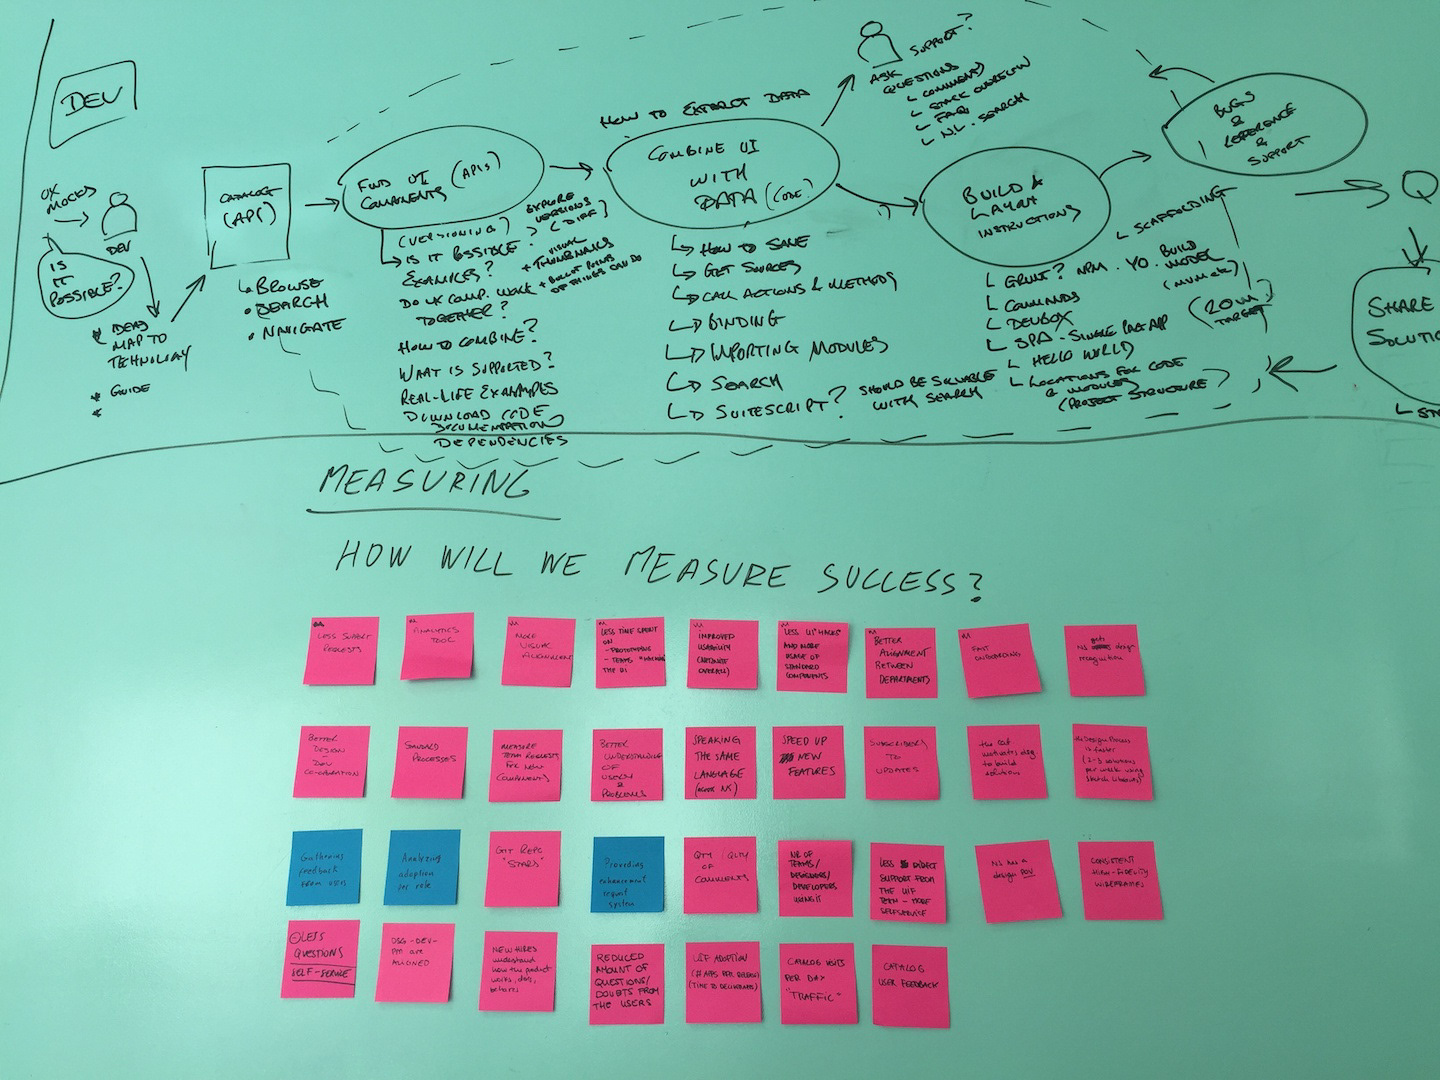 DEV
UX
MOCKS
DEV
IS
IT
POSSIBLE?
IDEAS
MAP TO
TECHNOLOGY
GUIDE
CATALOG
(API)
BROWSE
SEARCH
NAVIGATE
FIND UI (APIs)
COMPONENTS
(VERSIONING)
EXPLORE
VERSIONS
(DIFF)
IS IT POSSIBLE?
EXAMPLES?
+ VISUAL
THUMBNAILS
+ BULLET POINTS
OF THINGS CAN DO
DO UX COMP. WORK
TOGETHER?
HOW TO COMBINE?
WHAT IS SUPPORTED?
REAL-LIFE EXAMPLES
DOWNLOAD CODE
DOCUMENTATION
DEPENDENCIES
HOW TO EXTRACT DATA
COMBINE UI
WITH
DATA (CODE?
HOW TO SAVE
GET SOURCES
CALL ACTIONS & METHODS
BINDING
IMPORTING MODULES
SEARCH
SUITESCRIPT?
SHOULD BE SOLVABLE
WITH SEARCH
SUPPORT?
ASK
QUESTIONS
COMMENTS
STACK OVERFLOW
FAQ
N.L. SEARCH
BUILD &
LAYOUT
INSTRUCTIONS
SCAFFOLDING
GRUNT? NPM. YO. BUILD
MODEL
COMMANDS
DEVBOX
SPA - SINGLE PAGE APP
(20M
TARGET)
HELLO WORLD
LOCATIONS FOR CODE
& MODULES
(PROJECT STRUCTURE?
BUGS
&
REFERENCE
&
SUPPORT
Q
SHARE
SOLUTIO
MEASURING
HOW WILL WE MEASURE SUCCESS?
LESS SUPPORT
REQUESTS
ANALYTICS
TOOL
MORE
VISUAL
ALIGNMENT
LESS TIME SPENT
ON
- PROTOTYPING
- TEAMS "HACKING"
THE UI
IMPROVED
USABILITY
OVERALL)
LESS UI "HACKS"
AND MORE
USAGE OF
STANDARD
COMPONENTS
BETTER
ALIGNMENT
BETWEEN
DEPARTMENTS
FAST
ONBOARDING
NS gets design
recognition
BETTER
DESIGN
-
DEV
COOPERATION
PROCESSES
MEASURE
TEAM REQUESTS
FOR NEW
COMPONENTS
BETTER
UNDERSTANDING
OF
USERS &
PROBLEMS
SPEAKING
THE SAME
LANGUAGE
(ACROSS NS)
SPEED UP
NEW
FEATURES
SUBSCRIBERS
TO
UPDATES
the cat
motivates dsg.
to build
solutions
the Design Process
is faster
per week using
sketch libraries)
Gathering
feedback
from UXM
Analyzing
adoption
per role
GIT REPO
"STARS"
Providing
enhancement
request
system
QTY / QLTY
OF
COMMENTS
NR OF
TEAMS/
DESIGNERS/
DEVELOPERS
USING IT
LESS DIRECT
SUPPORT FROM
THE UIF
TEAM - MORE
SELFSERVICE
NS has a
design POV
CONSISTENT
HIGH-FIDELITY
WIREFRAMES
LESS
QUESTIONS
SELF-SERVICE
DSG-DEV-
PM are
ALIGNED
NEW HIRES
understand
how the product
works, does,
behaves
REDUCED
AMOUNT OF
QUESTIONS/
DOUBTS FROM
THE USERS
UIF ADOPTION
(# APPS PER RELEASE)
(TIME TO DELIVERABLES)
CATALOG VISITS
PER DAY
"TRAFFIC"
CATALOG
USER FEEDBACK